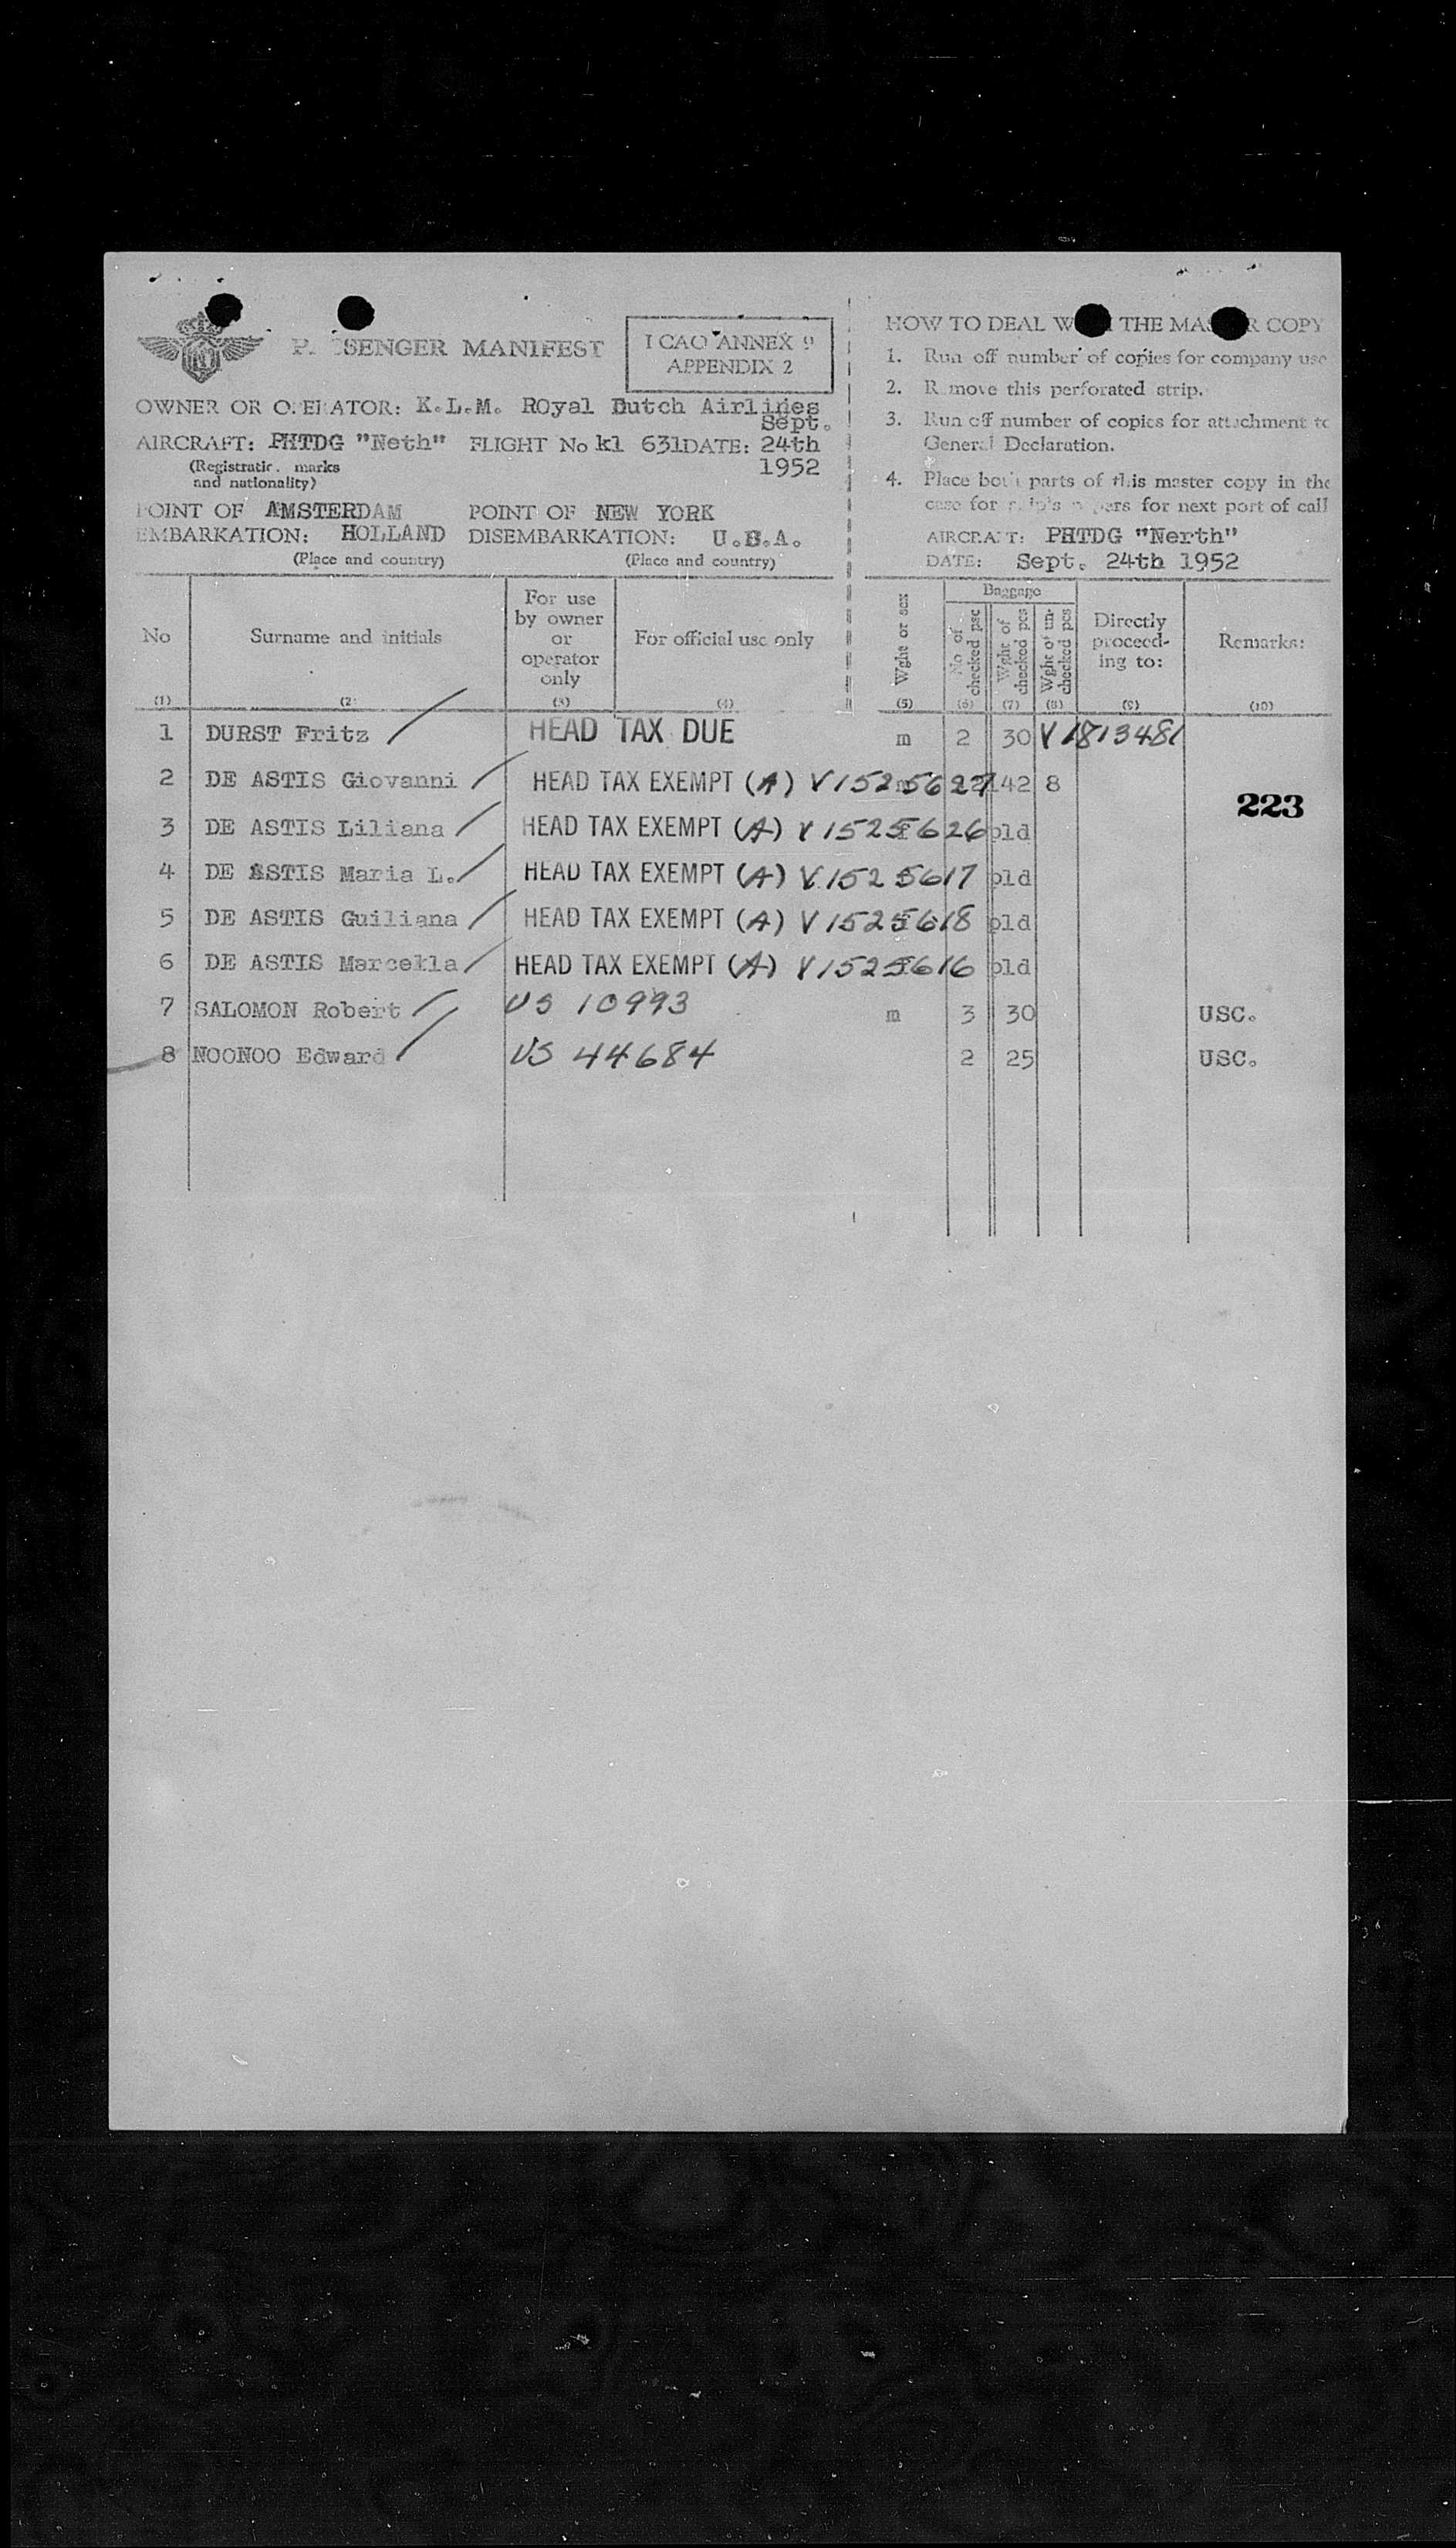 PASSENGER MANIFEST
I CAO ANNEX 9
APPENDIX 2
OWNER OR OPERATOR: K.L.M. ROyal Dutch Airlines
AIRCRAFT: PHTDG "Neth" FLIGHT No kl 631 DATE: Sept. 24th 1952
(Registratio. marks
and nationality)
POINT OF AMSTERDAM POINT OF NEW YORK
EMBARKATION: HOLLAND DISEMBARKATION: U.S.A.
(Place and country) (Place and country)
HOW TO DEAL WITH THE MASTER COPY
1. Run off number of copies for company use
2. Remove this perforated strip.
3. Run off number of copies for attachment to
General Declaration.
4. Place both parts of this master copy in the
case for ship's papers for next port of call
AIRCRAFT: PHTDG "Nerth"
DATE: Sept. 24th 1952
No Surname and initials For use by owner or operator only For official use only Wght or sex Baggage No of checked psc Wght of checked pcs Wght of un-checked pcs Directly proceed-ing to: Remarks:
(1) (2) (3) (4) (5) (6) (7) (8) (9) (10)
1 DURST Fritz HEAD TAX DUE m 2 30 V1813481
2 DE ASTIS Giovanni HEAD TAX EXEMPT (A) V1525627 142 8
223
3 DE ASTIS Liliana HEAD TAX EXEMPT (A) V1525626 pld
4 DE ASTIS Maria L. HEAD TAX EXEMPT (A) V1525617 pld
5 DE ASTIS Guiliana HEAD TAX EXEMPT (A) V1525618 pld
6 DE ASTIS Marcella HEAD TAX EXEMPT (A) V1525616 pld
7 SALOMON Robert US 10993 m 3 30 USC.
8 NOONOO Edward US 44684 2 25 USC.